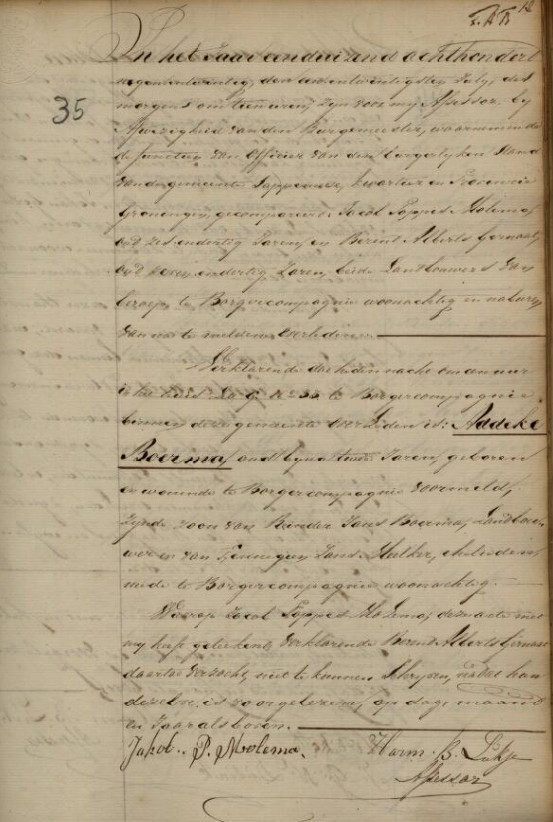 35
In het Jaar eenduizend achthonderd
negenentwintig, den eenentwintigsten July, des
morgens om tien uren, zyn voor my Assessor by
Afwezigheid van den Burgemeester, waarnemende
de functien van Officier van den burgerlyken Stand
van de gemeente Sappemeer, kwartier en Provincie
Groningen, gecompareerd: Jacob Poppes Molema,
oud zes en dertig Jaren, en Berent Alberts
oud zeven en dertig Jaren, beide Landbouwers van
beroep, te Borgercompagnie woonachtig en naburen
van na te melden Overledene
Verklarende dat heden nacht om een uur
in het huis te Borgercompagnie
binnen deze gemeente Overleden is:
Boerma, oud byna twee Jaren, geboren
en woonde te Borgercompagnie voormeld,
zynde zoon van Reinder Jans Boerma, Landbou
wer en van Jans ehelieden
mede te Borgercompagnie woonachtig.
Waarop Jacob Poppes Molema deze acte met
my heeft getekend, verklarende Berent Alberts
daartoe verzocht, niet te kunnen Schryven, nadat hun
dezelve is voorgelezen, op dag, maand
en Jaar als boven.
Jakob. P. Molema. Harm. B.
Assessor